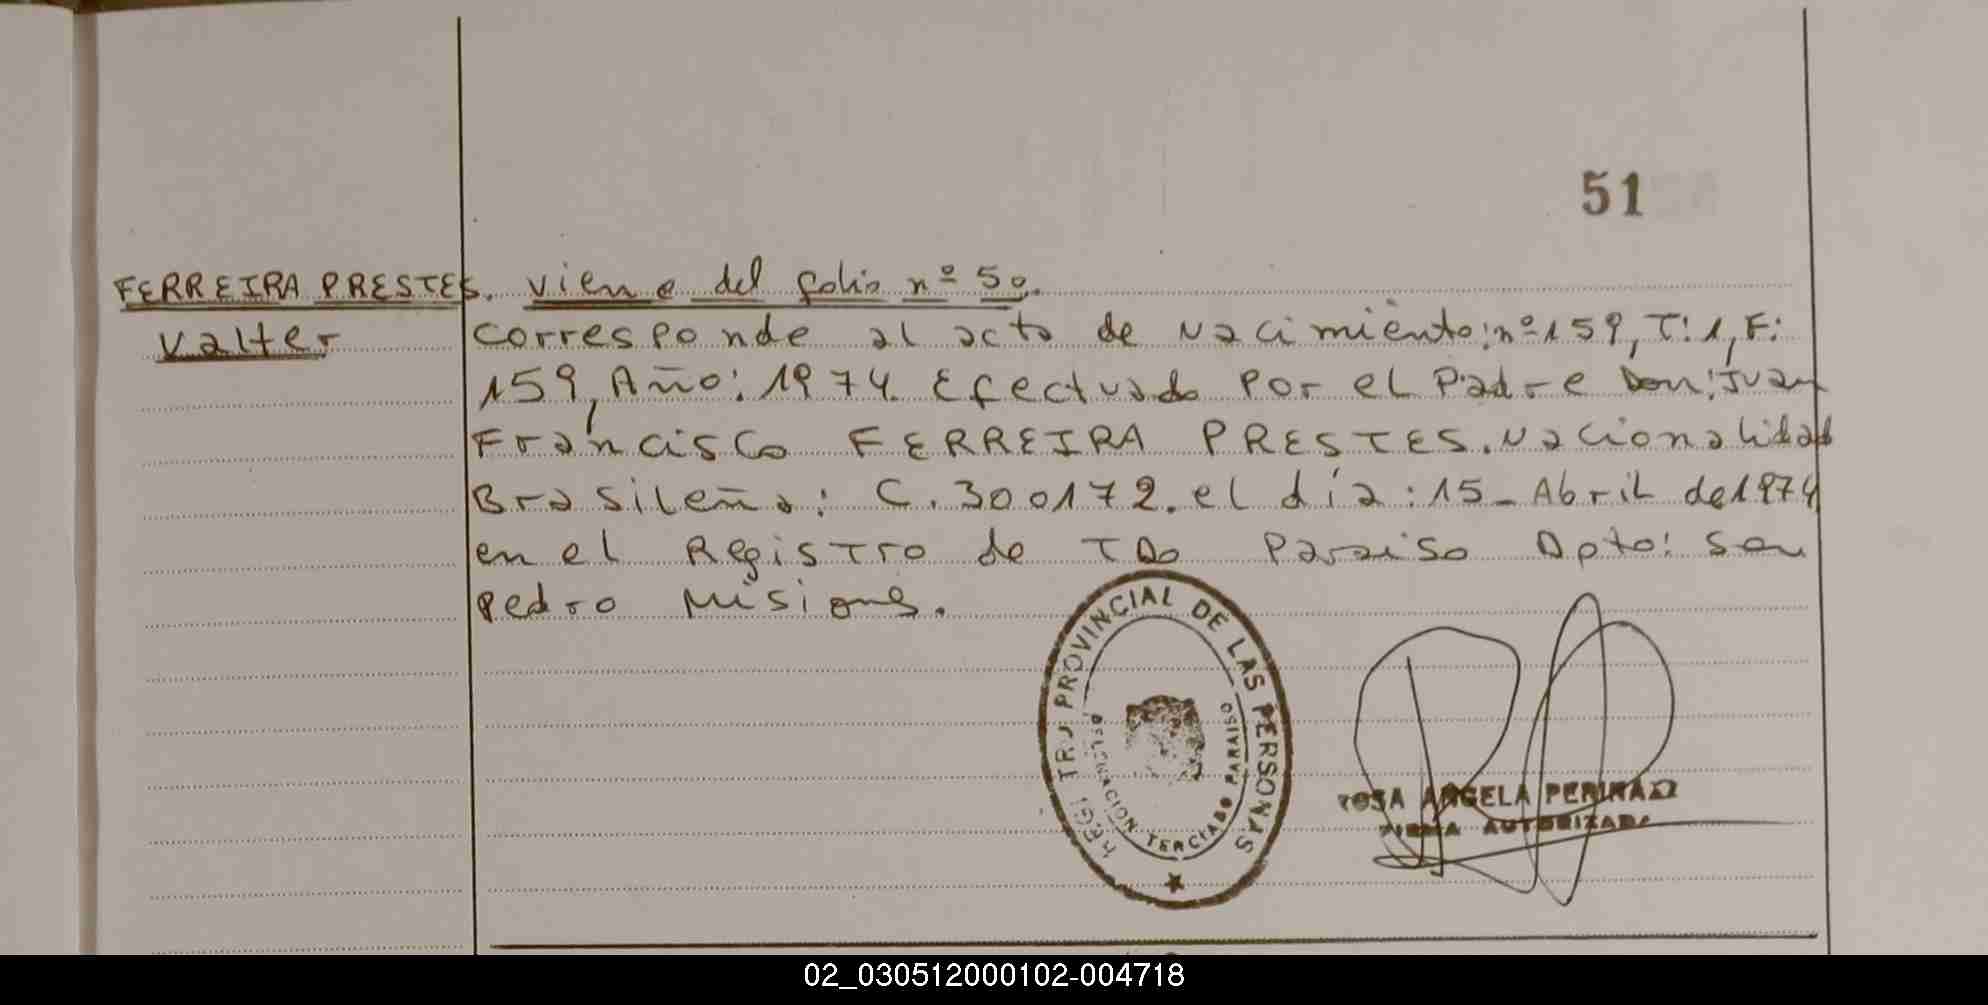 51
FERREIRA PRESTES. viene del folio nº 50.
Valter
Corresponde al acto de Nacimiento: nº 159, T: 1, F:
159, Año: 1974. Efectuado Por el Padre Don: Juan
Francisco FERREIRA PRESTES. Nacionalidad
Brasileña: C. 300172. el día: 15-Abril de 1974
en el Registro de TDO Paraiso Dpto: San
Pedro Misiones.
PROVINCIAL DE LAS PERSONAS
DELEGACION TERCIADO PARAISO
ROSA ANGELA
FIRMA AUTORIZADA
02_030512000102-004718